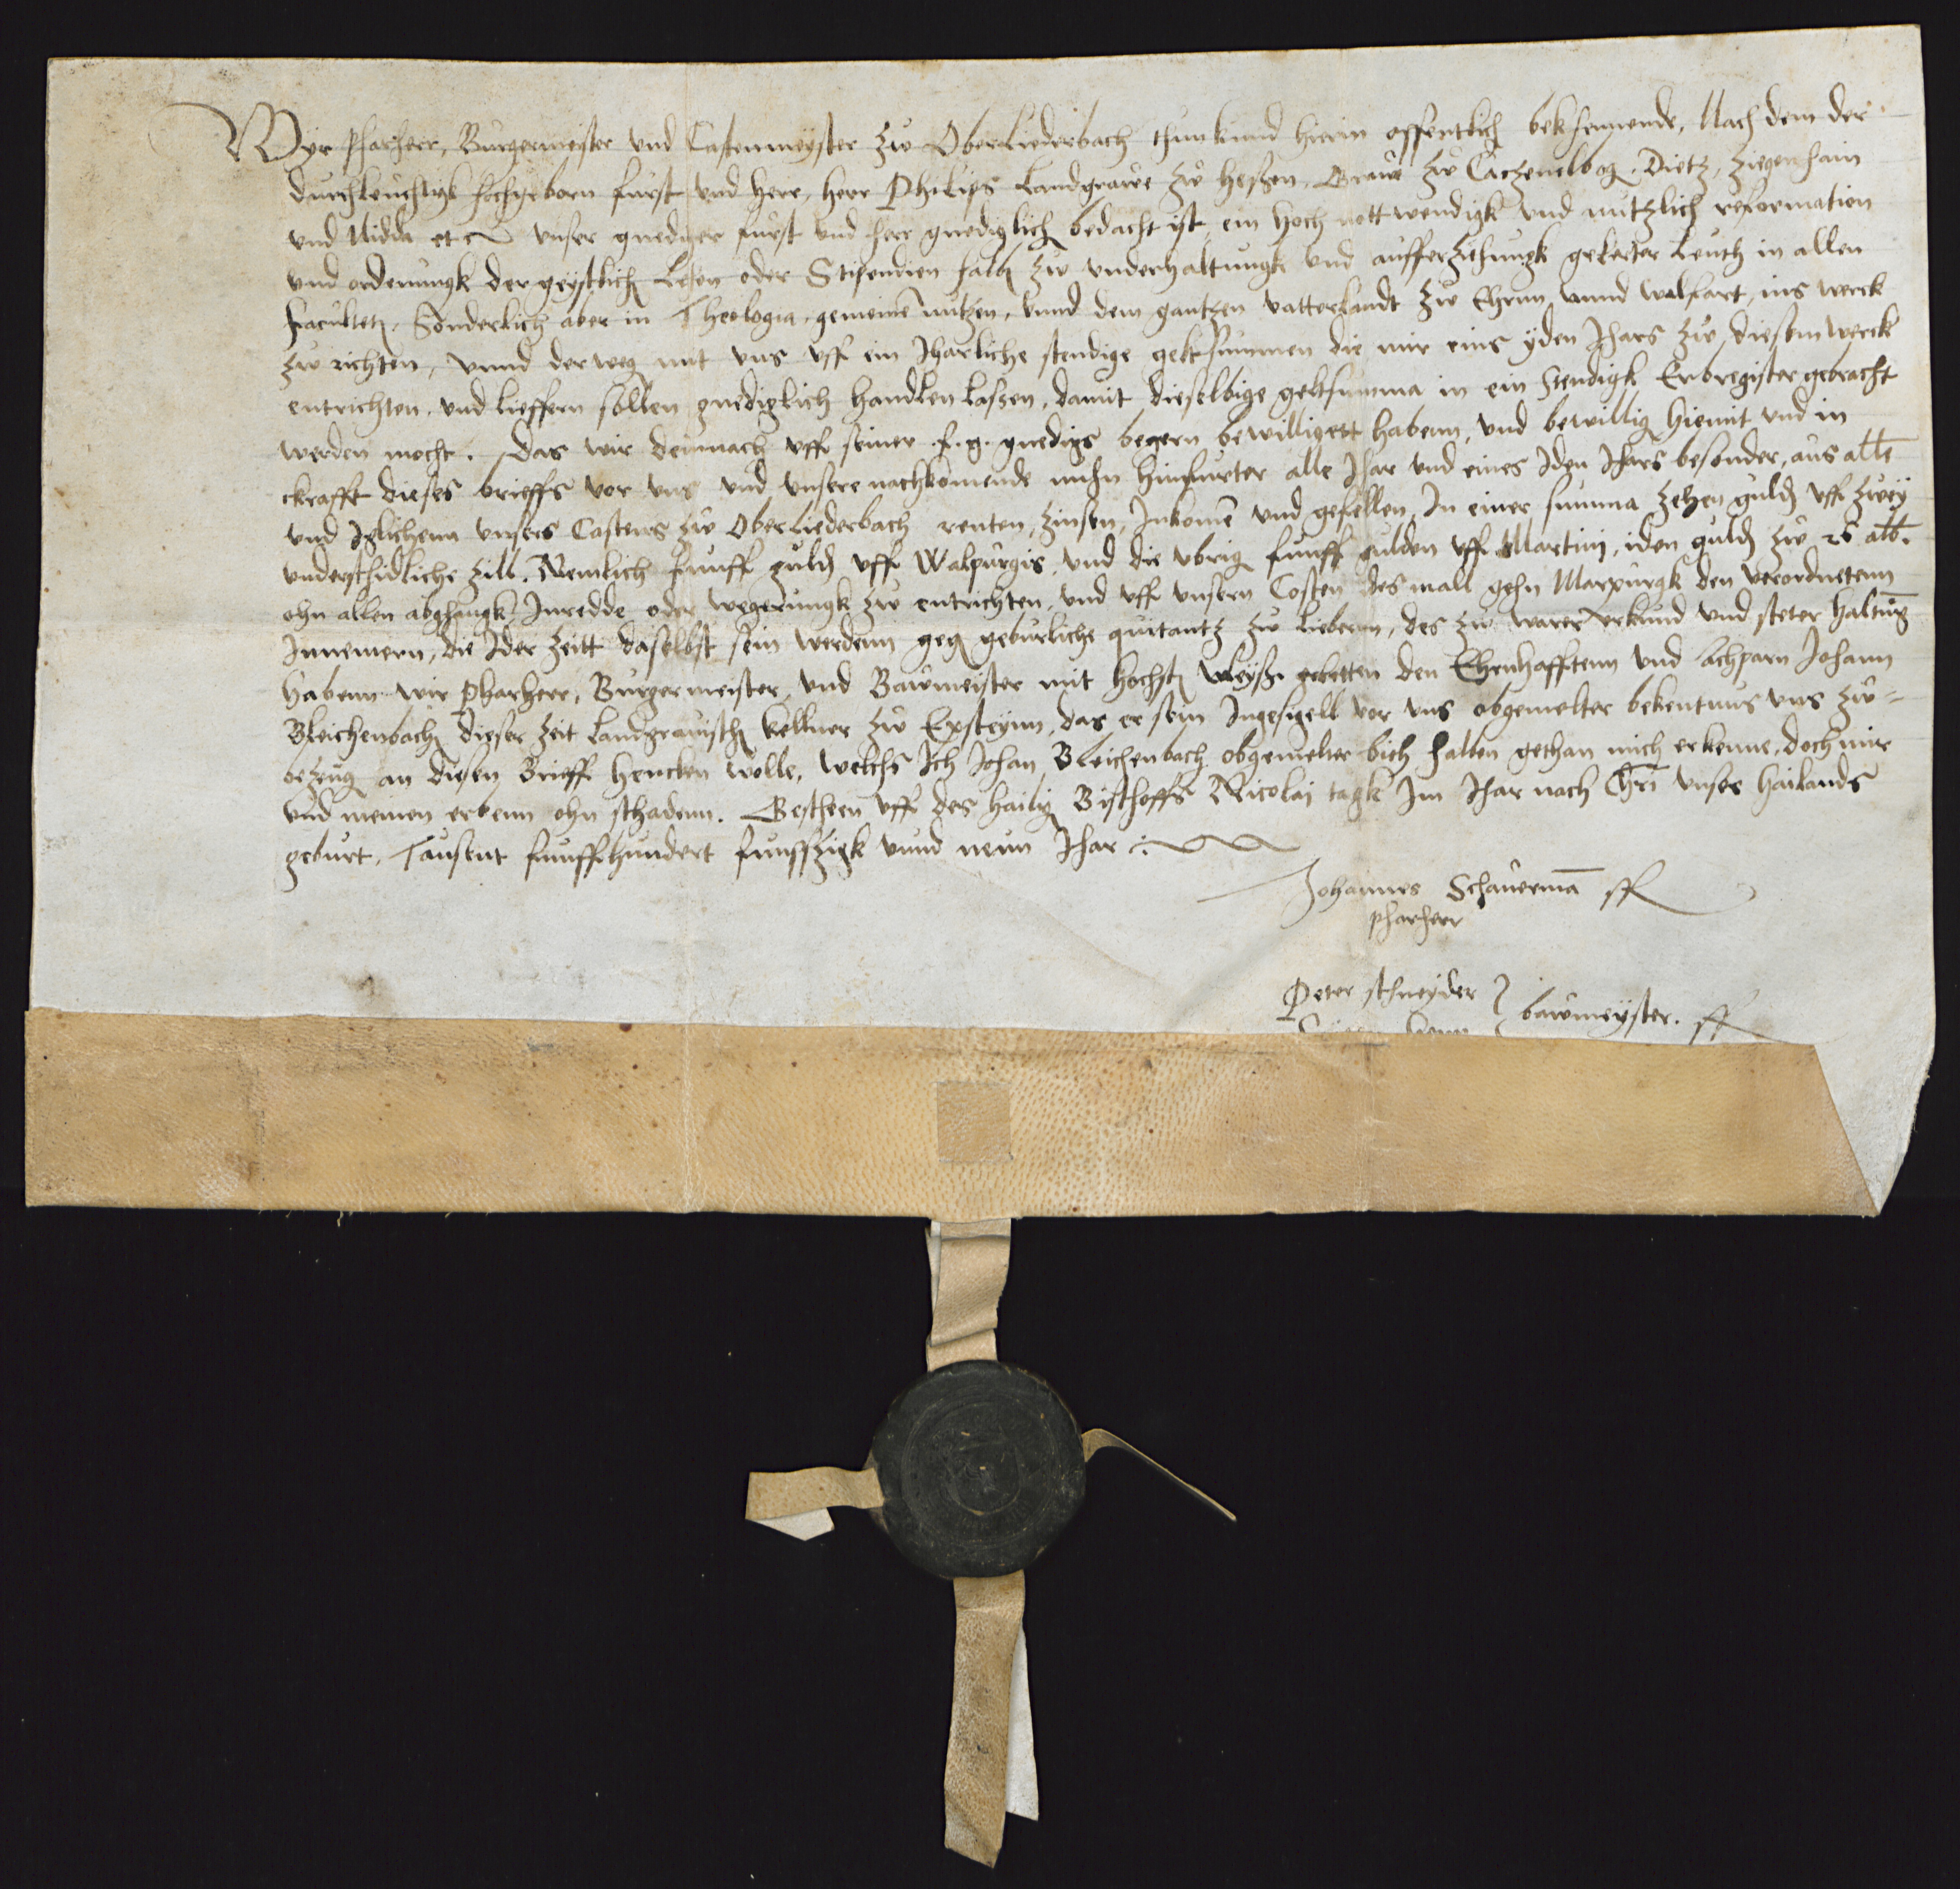 Wyr Pfarherr, Burgermeister und Castenmeyster zu OberLiederbach thun kund hierin offentlich bekhennende, Nach dem der
durchleuchtigk hochgeborn furst und Herr, Herr Philips Landgrave zu Heßen, Grave zu Catzenelbog, Dietz, Ziegenhain
und Nidda etc unser gnediger furst und herr gnediglich bedacht ist, ein hoch nottwendigk und nutzlich reformation
und ordenungk der geystlich Lehen oder Stipendien halb zu underhaltungk und aufferziehungk gelerter Leuth in allen
faculteten, Sonderlich aber in Theologia, gemeine nutzen, unnd dem gantzen vatterlandt zu Ehrnn unnd walfart, ins werck
zu richten, unnd der weg mit uns uff ein Jharliche stendige geltsummen die mir eins yden Jhars zu diesem werck
entrichten und lieffern sollen gnediglich handlen laßen, damit dieselbige geltsumma in ein Stendigk Erbregister gebracht
werden mocht. Das wir demnach uff seiner f. g. gnedigs begern bewilligett habenn, und bewillig hiemit und in
ckrafft dieses brieffs vor uns und unsere nachkomende nuhn hinfurter alle Jhar und eines Iden Jhars besonder, aus alle
und Iglichenn unsers Castens zu OberLiederbach renten, zinsen, Inkome und gefellen, In einer summa zehen guld uff zwey
underschidliche zill. Nemlich funff guld uff Walpurgis, und die ubrig funff gulden uff Martini, iden guld zu 26 alb.
ohn allen abghangk, Inredde oder wegerungk zu entrichten, und uff unsern Costen des mall gehn Marpurgk den verordnetenn
Innemern, die Ider zeitt daselbst sein werdenn geg geburliche quitantz zu liebernn, des zu warer urkund und steter haltung
habenn wir Pharherr, Burgermeister, und Bawmeister mit hochst vleyß gebetten den Ehrnhafftenn und achparn Johann
Bleichenbach dieser zeit Landgravisch kellner zu Epsteynn, das er sein Ingesigell vor uns obgemelter bekentnus uns zu=
bezeug an diesen Brieff hencken wolle, welchs Ich Johan Bleichenbach obgemelter bieth halben gethan mich erkenne, doch mir
und meinen erbenn ohn schadenn. Gescheen uff des hailig Bischoffs Nicolai tagk Im Jhar nach Chri unsers hailands
geburt, Tausent funffhundert funffzigk unnd neun Jhar
Johannes Schauerma sst
pfarherr
Peter schneyder } bawmeyster. sst